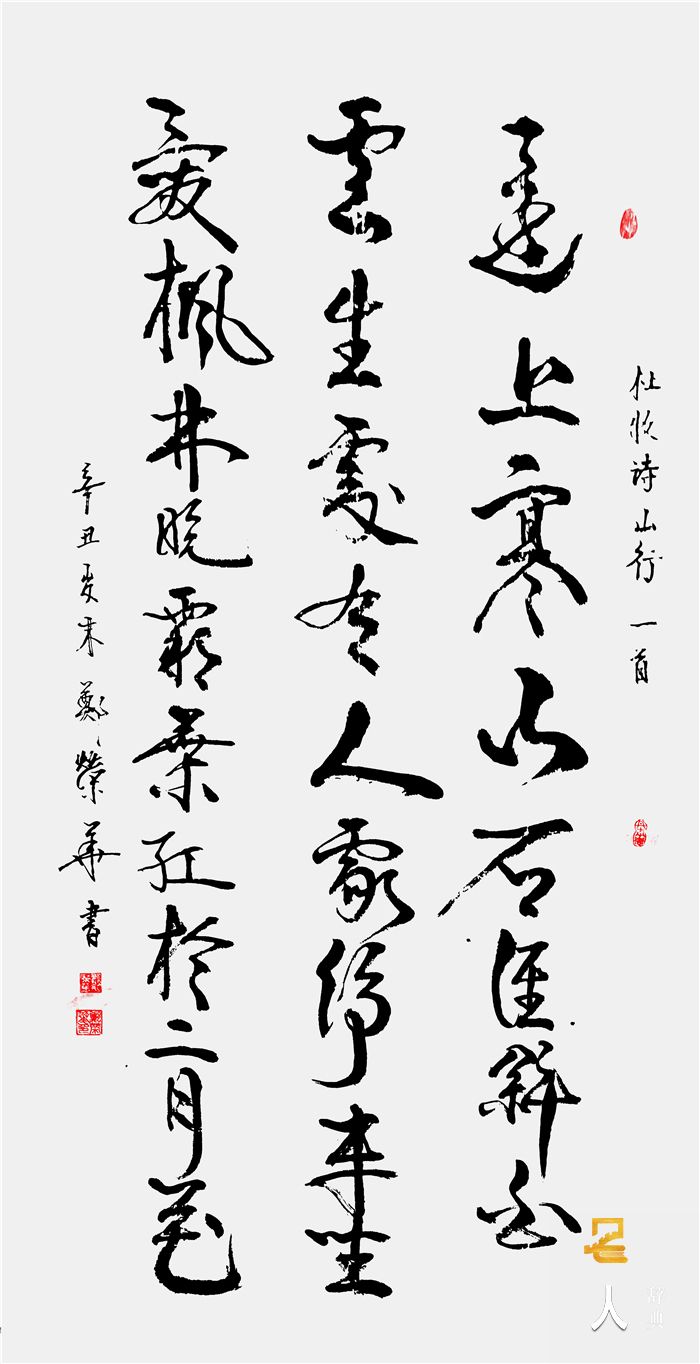 杜牧诗山行一首
遠上寒山石徑斜白
雲生處有人家停車坐
愛楓林晚霜葉紅於二月花
辛丑夏末鄭榮華書
名人辞典